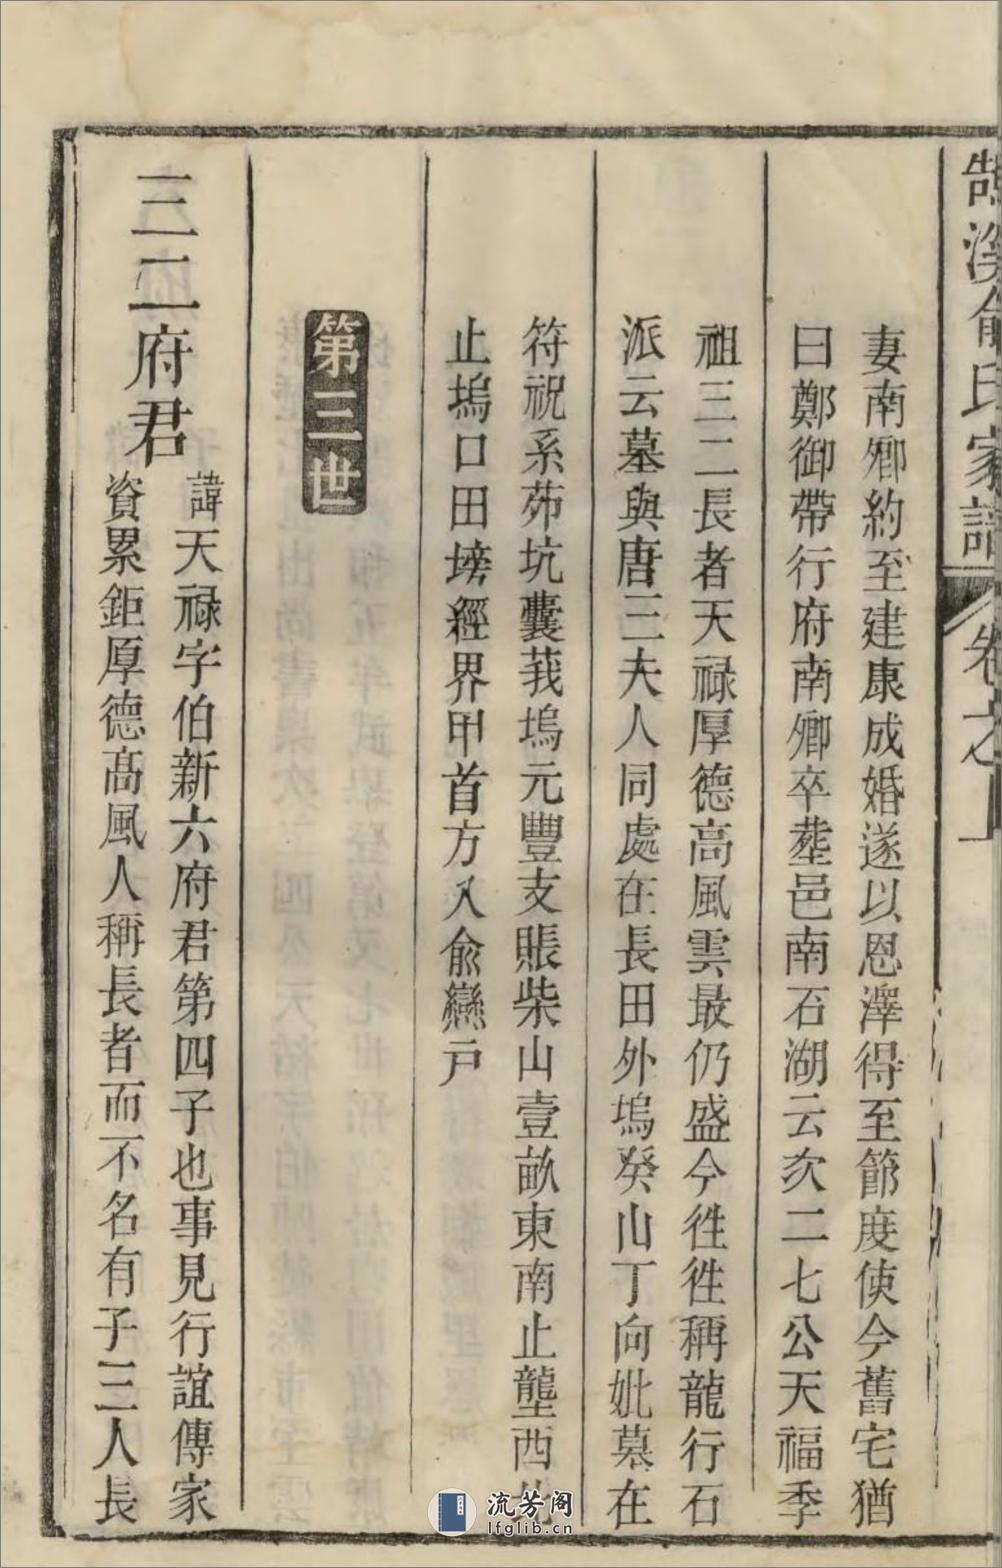 俞氏家譜 卷之上
妻南卿約至建康成婚遂以恩澤得至節度使今舊宅猶
曰鄭御帶行府南卿卒塟邑南石湖云次二七公天福季
祖三二長者天祿厚德高風雲最仍盛今徃徃稱龍行石
派云墓與唐三夫人同處在長田外塢癸山丁向妣墓在
符祝系茆坑囊莪塢元豐支賬柴山壹畝東南止壟西北
止塢口田塝經界甲首方入俞戀戶
第三世
三二府君
諱天禄字伯新六府君第四子也事見行誼傳家
資累鉅厚德髙風人稱長者而不名有子三人長
流芳阁
lfglib.cn